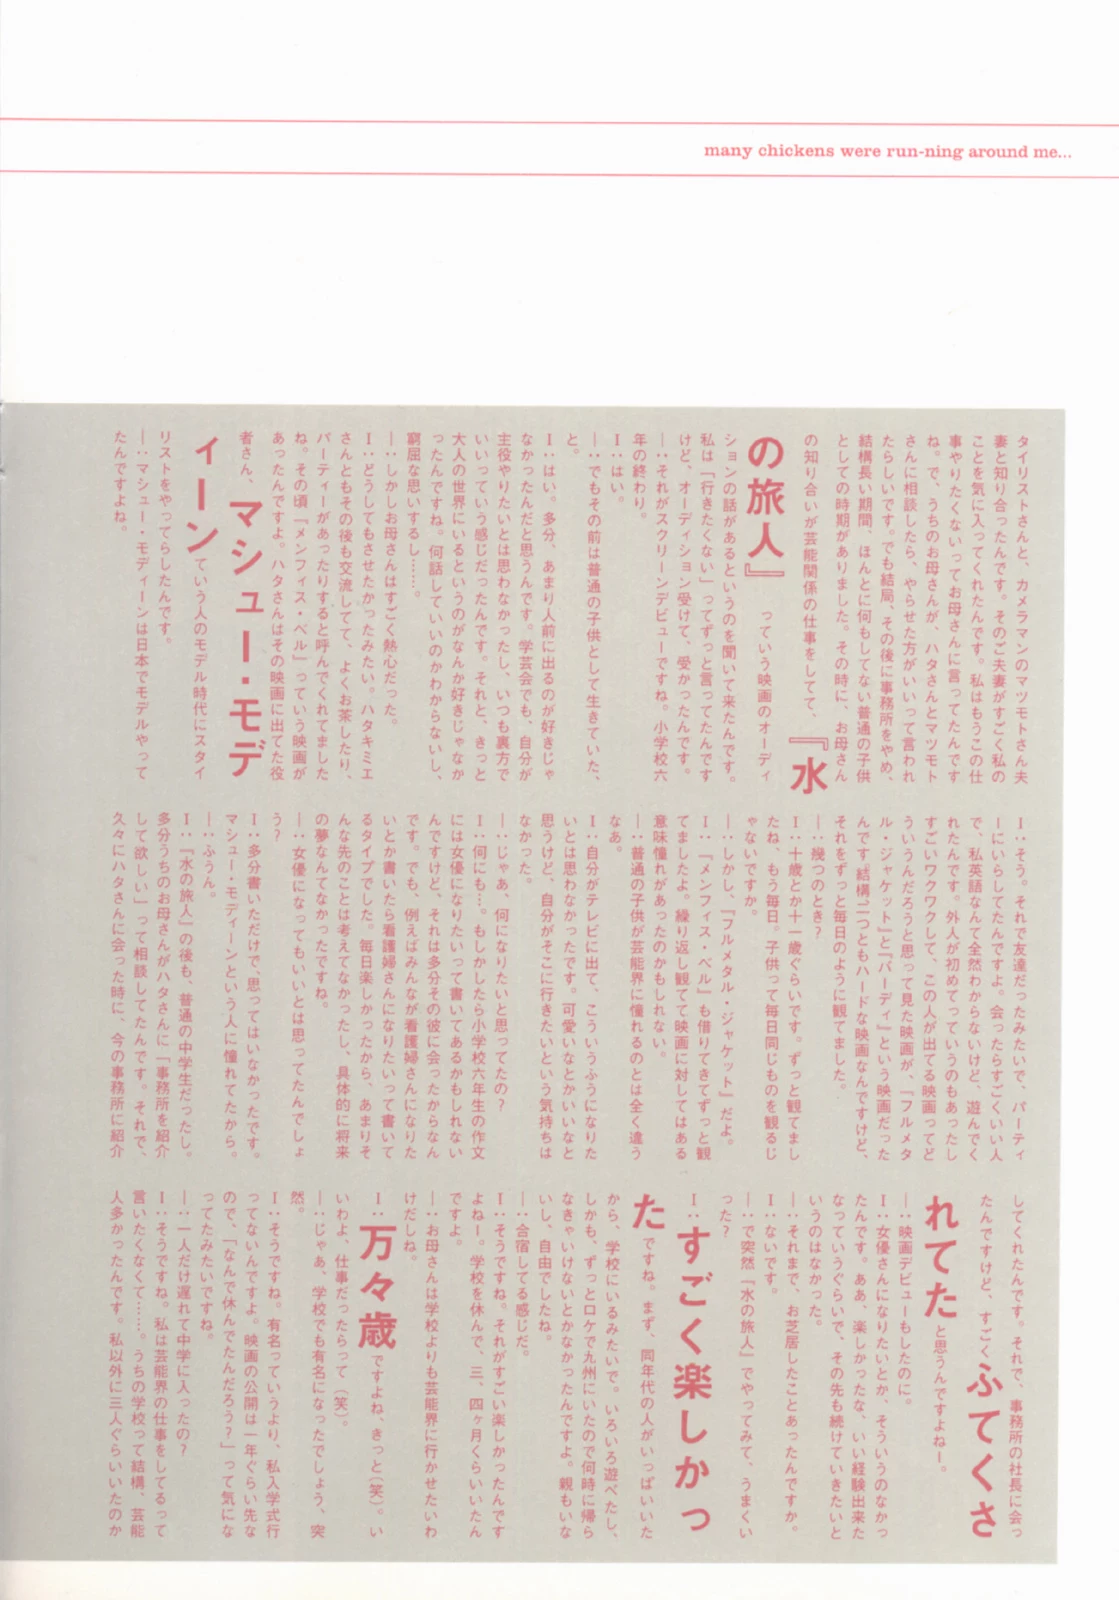 many chickens were run-ning around me...
タイリストさんと、カメラマンのマツモトさん夫
妻と知り合ったんです。そのご夫妻がすごく私の
ことを気に入ってくれたんです。私はもうこの仕
事やりたくないってお母さんに言ってたんです
ね。で、うちのお母さんが、ハタさんとマツモト
さんに相談したら、やらせた方がいいって言われ
たらしいです。でも結局、その後に事務所をやめ、
結構長い期間、ほんとに何もしてない普通の子供
としての時期がありました。その時に、お母さん
の知り合いが芸能関係の仕事をしてて、『水
の旅人』っていう映画のオーディ
ションの話があるというのを聞いて来たんです。
私は「行きたくない」ってずっと言ってたんです
けど、オーディション受けて、受かったんです。
―それがスクリーンデビューですね。小学校六
年の終わり。
I：はい。
―でもその前は普通の子供として生きていた、
と。
I：はい。多分、あまり人前に出るのが好きじゃ
なかったんだと思うんです。学芸会でも、自分が
主役やりたいとは思わなかったし、いつも裏方で
いいっていう感じだったんです。それと、きっと
大人の世界にいるというのがなんか好きじゃなか
ったんですね。何話していいのかわからないし、
窮屈な思いするし……。
―しかしお母さんはすごく熱心だった。
I：どうしてもさせたかったみたい。ハタキミエ
さんともその後も交流してて、よくお茶したり、
パーティーがあったりすると呼んでくれてました
ね。その頃『メンフィス・ベル』っていう映画が
あったんですよ。ハタさんはその映画に出てた役
者さん、マシュー・モデ
ィーンていう人のモデル時代にスタイ
リストをやってらしたんです。
―マシュー・モディーンは日本でモデルやって
たんですよね。
I：そう。それで友達だったみたいで、パーティ
ーにいらしてたんですよ。会ったらすごくいい人
で、私英語なんて全然わからないけど、遊んでく
れたんです。外人が初めてっていうのもあったし
すごいワクワクして、この人が出てる映画ってど
ういうんだろうと思って見た映画が、『フルメタ
ル・ジャケット』と『バーディ』という映画だった
んです。結構二つともハードな映画なんですけど、
それをずっと毎日のように観てました。
―幾つのとき？
I：十歳とか十一歳ぐらいです。ずっと観てまし
たね、もう毎日。子供って毎日同じものを観るじ
ゃないですか。
―しかし、『フルメタル・ジャケット』だよ。
I：『メンフィス・ベル』も借りてきてずっと観
てましたよ。繰り返し観てて映画に対してはある
意味憧れがあったのかもしれない。
―普通の子供が芸能界に憧れるのとは全く違う
なあ。
I：自分がテレビに出て、こういうふうになりた
いとは思わなかったです。可愛いなとかいいなと
思うけど、自分がそこに行きたいという気持ちは
なかった。
―じゃあ、何になりたいと思ってたの？
I：何にも…。もしかしたら小学校六年生の作文
には女優になりたいって書いてあるかもしれない
んですけど、それは多分その彼に会ったからなん
です。でも、例えばみんなが看護婦さんになりた
いとか書いたら看護婦さんになりたいって書いて
るタイプでした。毎日楽しかったから、あまりそ
んな先のことは考えてなかったし、具体的に将来
の夢なんてなかったですね。
―女優になってもいいとは思ってたんでしょ
う？
I：多分書いただけで、思ってはいなかったです。
マシュー・モディーンという人に憧れてたから。
―ふうん。
I：『水の旅人』の後も、普通の中学生だったし。
多分うちのお母さんがハタさんに「事務所を紹介
して欲しい」って相談してたんです。それで、
久々にハタさんに会った時に、今の事務所に紹介
してくれたんです。それで、事務所の社長に会っ
たんですけど、すごくふてくさ
れてたと思うんですよねー。
―映画デビューもしたのに。
I：女優さんになりたいとか、そういうのなかっ
たんです。ああ、楽しかったな、いい経験出来た
なっていうぐらいで、その先も続けていきたいと
いうのはなかった。
―それまで、お芝居したことあったんですか。
I：ないです。
―で突然『水の旅人』でやってみて、うまくい
った？
I：すごく楽しかっ
たですね。まず、同年代の人がいっぱいいた
から、学校にいるみたいで。いろいろ遊べたし、
しかも、ずっとロケで九州にいたので何時に帰ら
なきゃいけないとかなかったんですよ。親もいな
いし、自由でしたね。
―合宿してる感じだ。
I：そうですね。それがすごい楽しかったんです
よねー。学校を休んで、三、四ヶ月くらいいたん
ですよ。
―お母さんは学校よりも芸能界に行かせたいわ
けだしね。
I：万々歳ですよね、きっと（笑）。い
いわよ、仕事だったらって（笑）。
―じゃあ、学校でも有名になったでしょう、突
然。
I：そうですね。有名っていうより、私入学式行
ってないんですよ。映画の公開は一年ぐらい先な
ので、「なんで休んでたんだろう？」って気にな
ってたみたいですね。
―一人だけ遅れて中学に入ったの？
I：そうですね。私は芸能界の仕事をしてるって
言いたくなくて……。うちの学校って結構、芸能
人多かったんです。私以外に三人ぐらいいたのか